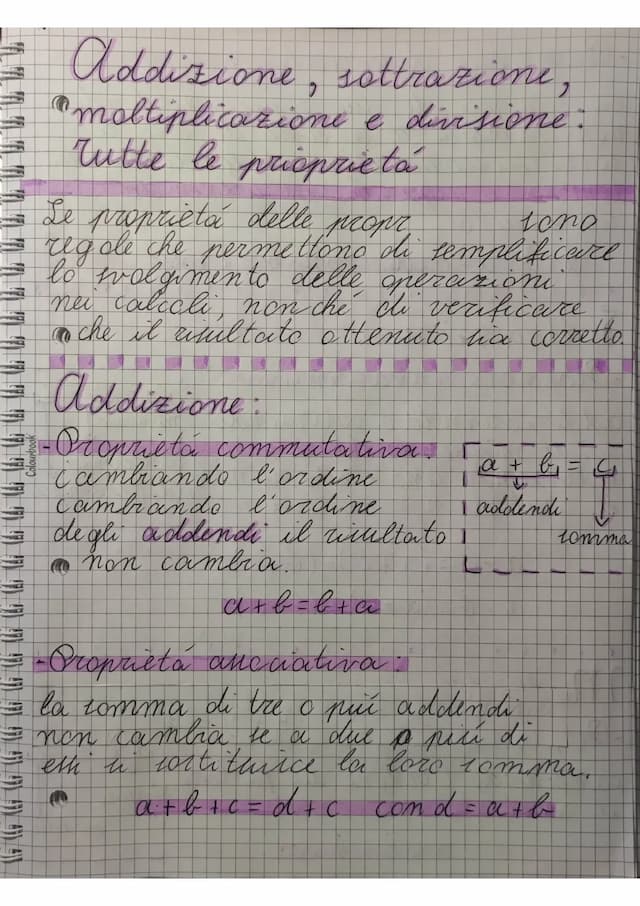 Addizione, sottrazione,
moltiplicazione e divisione:
tutte le proprietá
Le proprietá delle propr sono
regole che permettono di semplificare
lo svolgimento delle operazioni
nei calcoli, nonché di verificare
che il risultato ottenuto sia corretto.
Addizione:
Colourbook
-Proprietá commutativa:
cambiando l'ordine
cambiando l'ordine
degli addendi il risultato
non cambia.
a + b = c
addendi
somma
a+b=b+a
-Proprietá associativa:
la somma di tre o piú addendi
non cambia se a due o piú di
essi si sostituisce la loro somma.
a+b+c=d+c con d=a+b